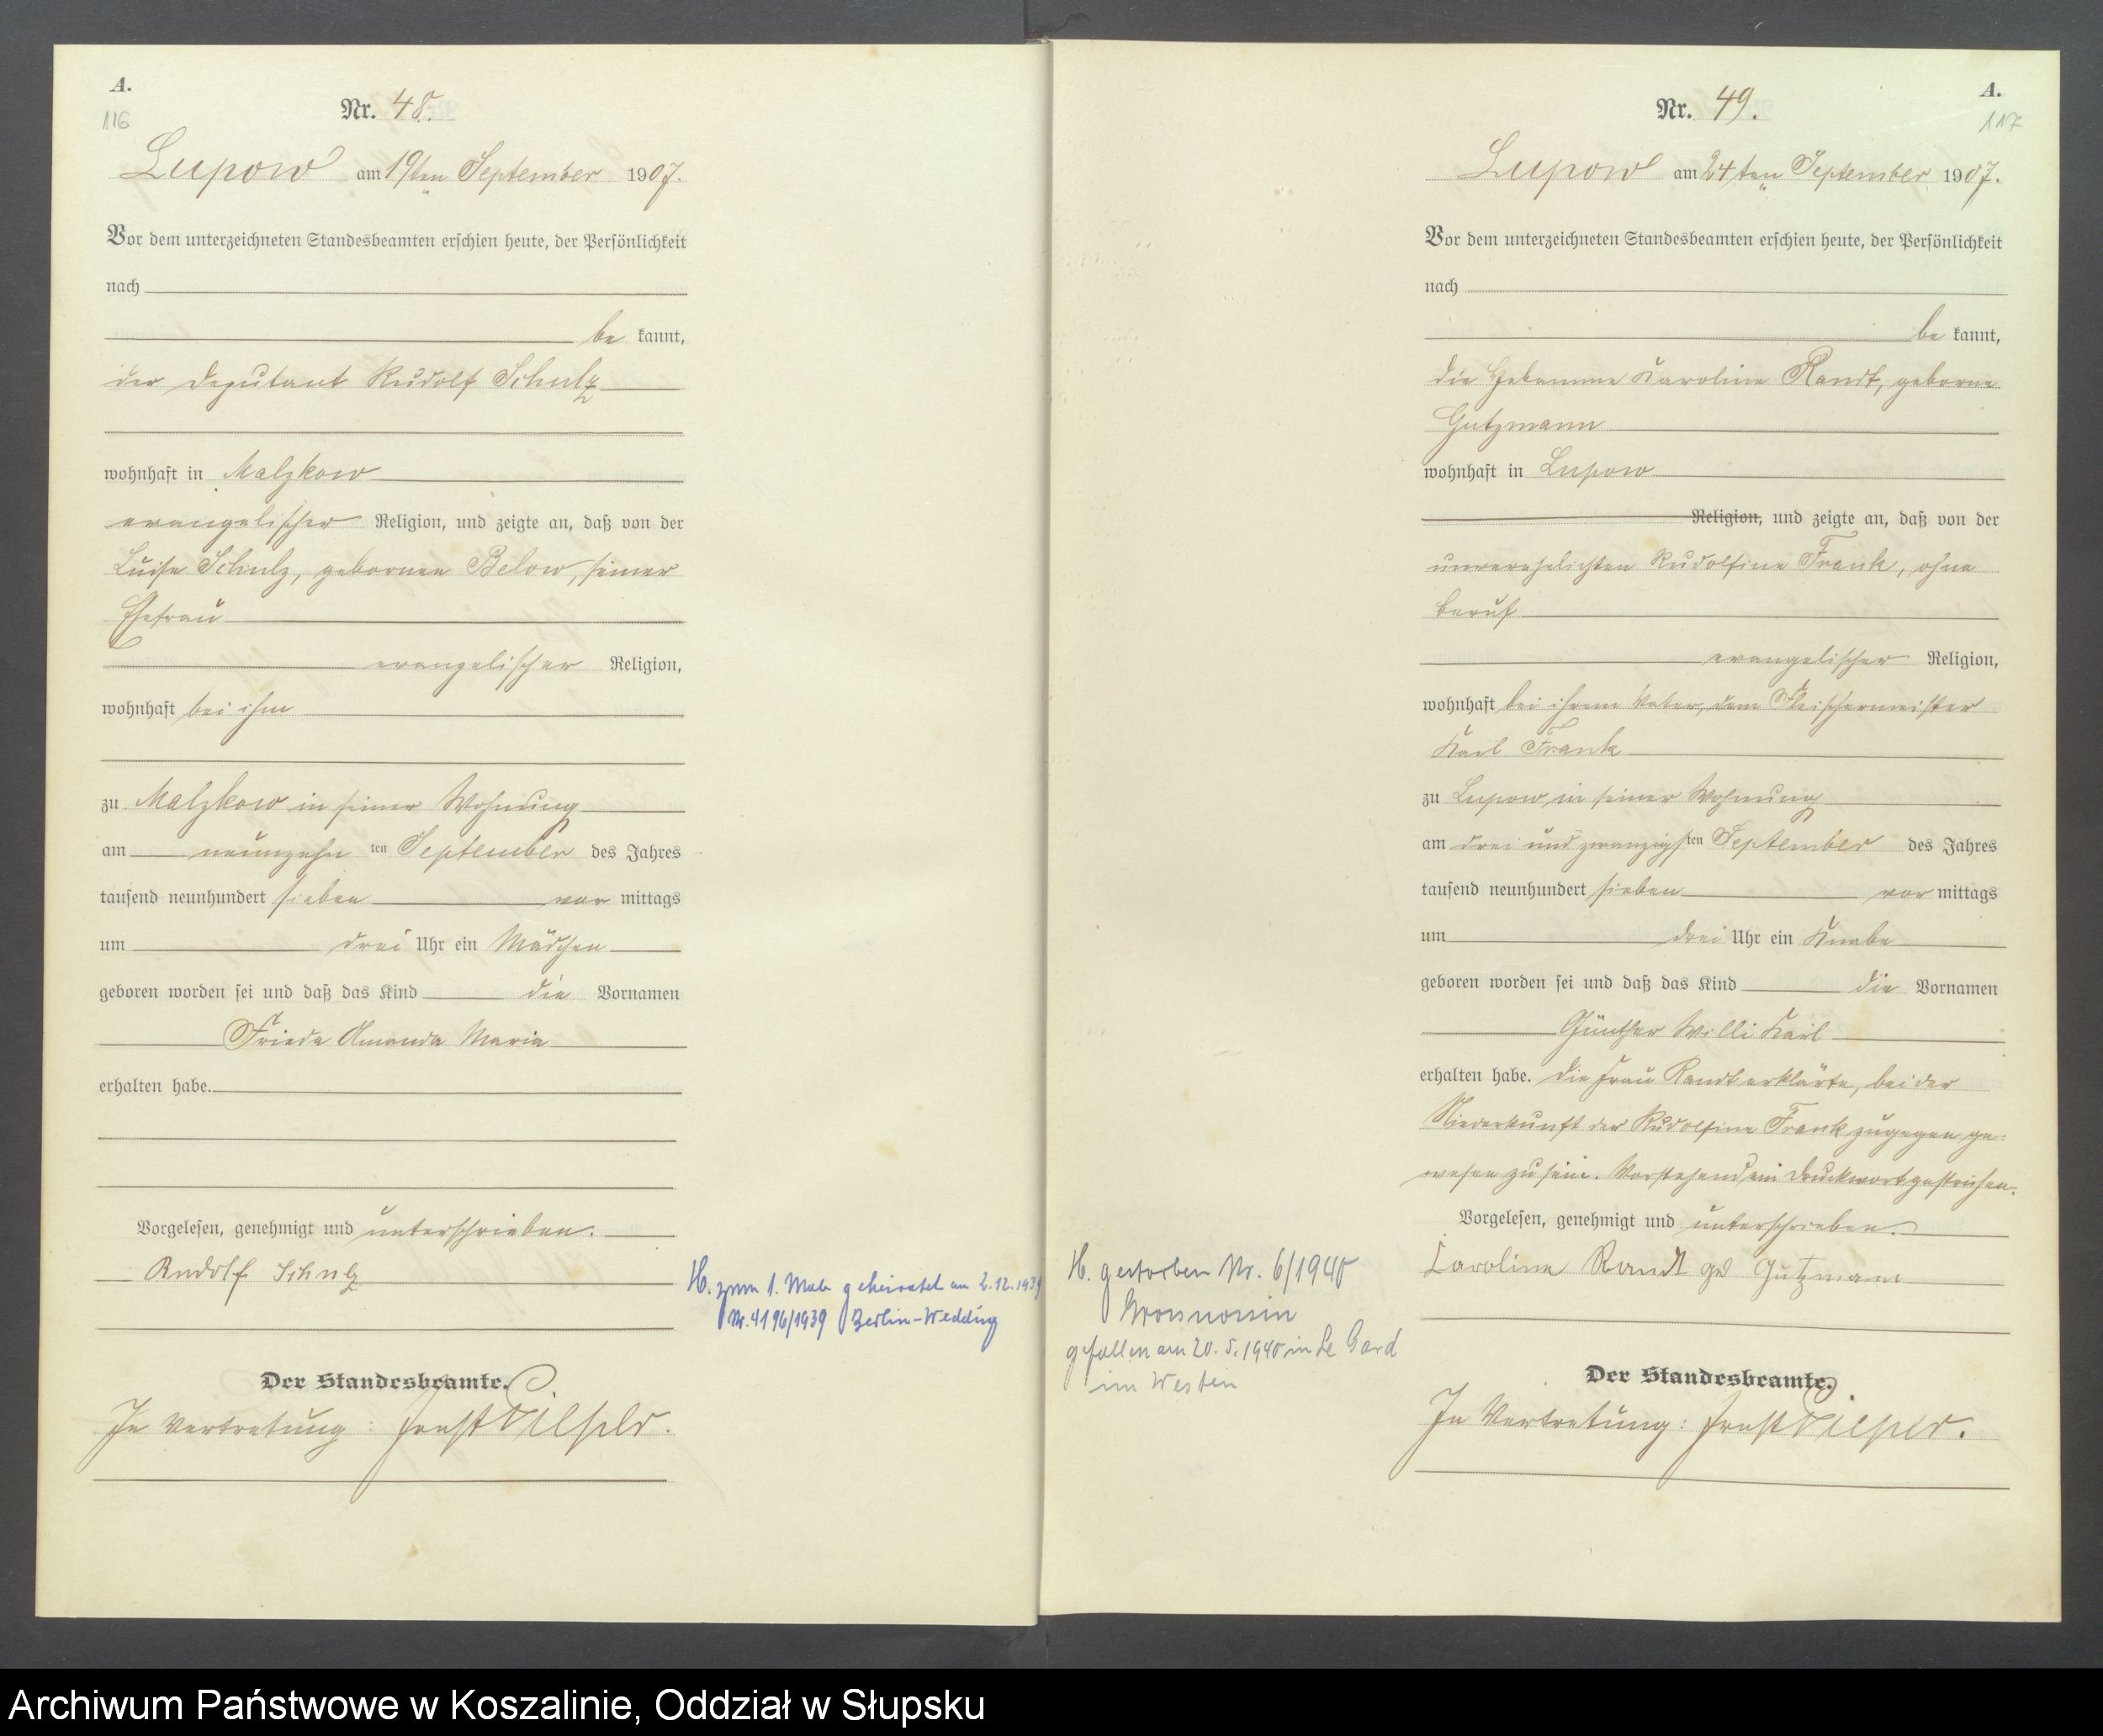 A.
116
Nr. 48.
Lupow am 19ten September 1907.
Vor dem unterzeichneten Standesbeamten erschien heute, der Persönlichkeit
nach
be kannt,
der Deputant Rudolf Schulz
wohnhaft in Malzkow
evangelischer Religion, und zeigte an, daß von der
Luise Schulz, gebornen Below, seiner
Ehefrau
evangelischer Religion,
wohnhaft bei ihm
zu Malzkow in seiner Wohnung
am neunzehn ten September des Jahres
tausend neunhundert sieben vor mittags
um drei Uhr ein Mädchen
geboren worden sei und daß das Kind die Vornamen
Frieda Amanda Maria
erhalten habe.
Vorgelesen, genehmigt und unterschrieben.
Rudolf Schulz
H. zum 1. Male geheiratet am 2.12.1939
Nr. 4196/1939 Berlin-Wedding
Der Standesbeamte.
In Vertretung: Ernst
A.
117
Nr. 49.
Lupow am 24ten September 1907.
Vor dem unterzeichneten Standesbeamten erschien heute, der Persönlichkeit
nach
be kannt,
die Hebamme Karoline Randt, geborne
Gutzmann
wohnhaft in Lupow
Religion, und zeigte an, daß von der
unverehelichten Rudolfine Frank, ohne
Beruf
evangelischer Religion,
wohnhaft bei ihrem Vater, dem Fleischermeister
Karl Frank
zu Lupow in seiner Wohnung
am drei und zwanzigsten September des Jahres
tausend neunhundert sieben vor mittags
um drei Uhr ein Knabe
geboren worden sei und daß das Kind die Vornamen
Günther Willi Karl
erhalten habe. Die Frau Randt erklärte, bei der
Niederkunft der Rudolfine Frank zugegen ge-
wesen zu sein. Vorstehend ein Druckwort gestrichen.
Vorgelesen, genehmigt und unterschrieben.
Karoline Randt geb Gutzmann
H. gestorben Nr. 6/1940
Grossnossin
gefallen am 20.5.1940 in Le Gard
im Westen
Der Standesbeamte.
In Vertretung: Ernst
Archiwum Państwowe w Koszalinie, Oddział w Słupsku